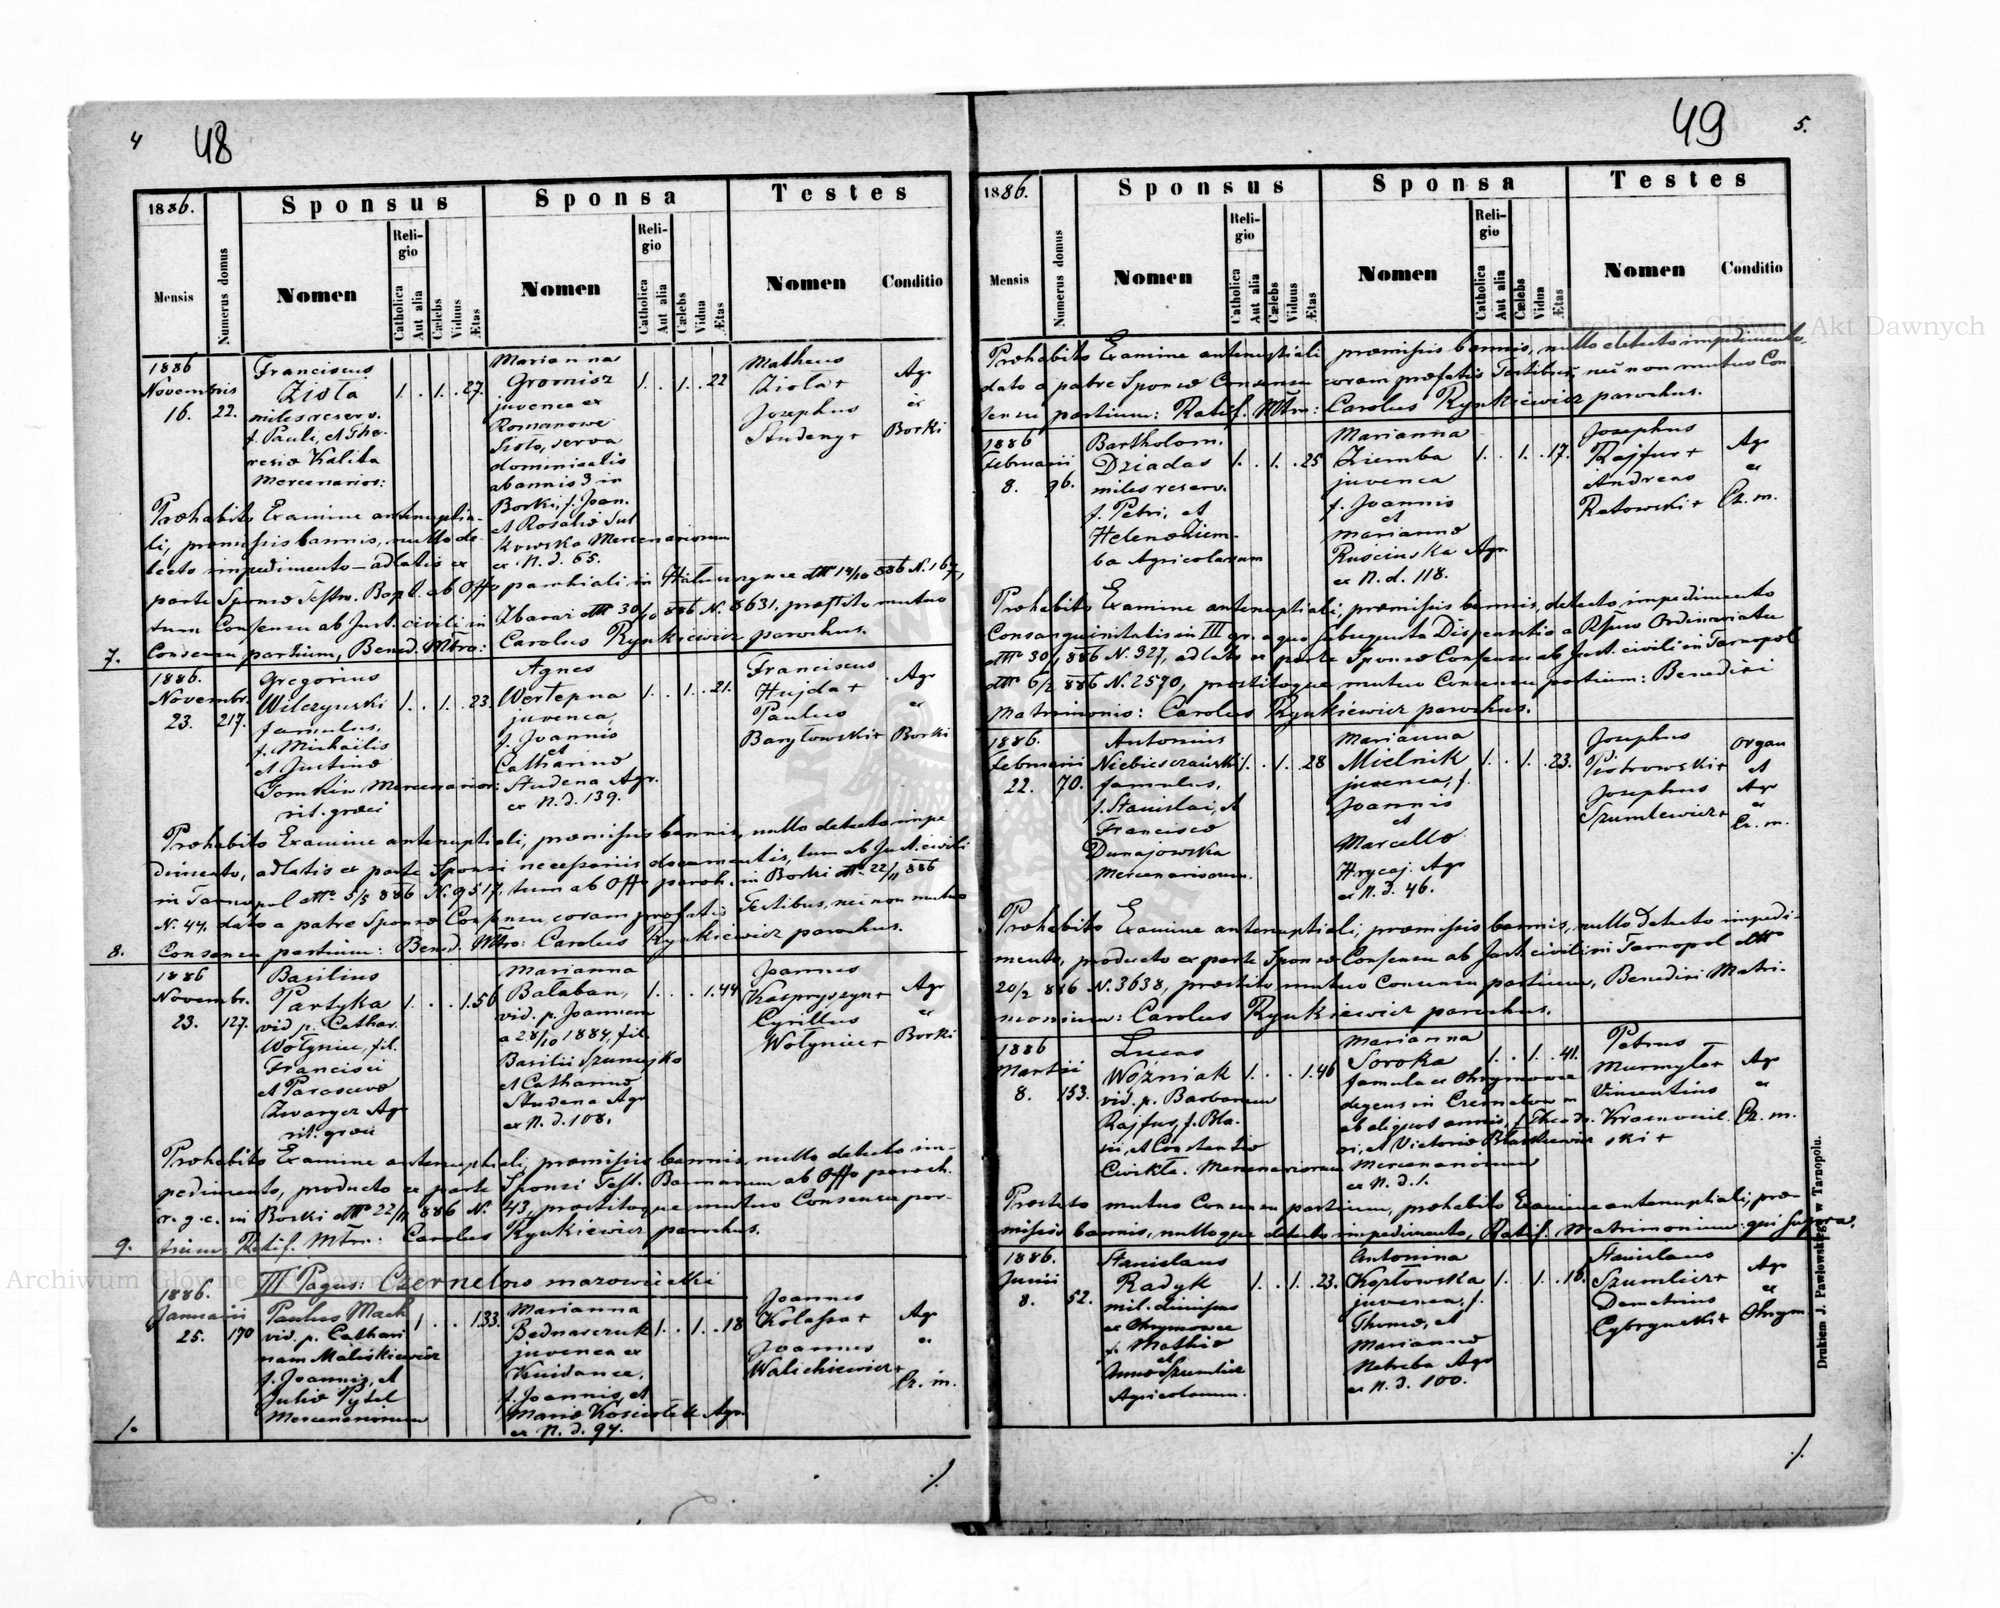 4
48
1886.
Mensis
Numerus domus
Sponsus
Nomen
Religio
Catholica
Aut alia
Cælebs
Viduus
Ætas
Sponsa
Nomen
Religio
Catholica
Aut alia
Cælebs
Vidua
Ætas
Testes
Nomen
Conditio
1886
Novembris
16. 22.
Franciscus
Zioła
miles reserv.
f. Pauli, et The-
resiæ Kalita
Mercenarior:
1. . 1. . 27.
Marianna
Gromisz
juvenca ex
Romanowe
Sioło, serva
dominicalis
ab annis 3 in
Borki, f. Joan.
et Rosaliæ Sut
kowska Mercenariorum
ex N. d. 65.
1. . 1. . 22
Matheus
Zioła +
Josephus
Studeny +
Agr
ex
Borki
Præhabito Examine antenuptia-
li, præmissis bannis, nullo de-
tecto impedimento – adlatis ex
parte Sponsæ Testim. Bapt. ab Offo parochiali in dtto 14/10 886 N. 164,
tum Consensu ab Jud. civili in Zbaraz dtto 30/10 886 N. 8631. præstito mutuo
7. Consensu partium, Bened. Mtro: Carolus Rynkiewicz parochus.
1886.
Novembr.
23. 217.
Gregorius
Wilczynski
famulus,
f. Michaëlis
et Justinæ
Tomkiw Mercenarior:
rit. græci
1. . 1. . 23.
Agnes
Wertepna
juvenca,
f. Joannis
et
Catharinæ
Studena Agr.
ex N. d. 139.
1. . 1. . 21.
Franciscus
Hujda +
Paulus
Baryłowski +
Agr
ex
Borki
Præhabito Examine antenuptiali, præmissis bannis, nullo detecto impe
dimento, adlatis ex parte Sponsi necessariis documentis, tum ab Jud. civili
in Tarnopol dtto 5/5 886 N. 9517, tum ab Offo paroch. in Borki dtto 22/11 886
N. 44, dato a patre Sponsæ Consensu coram præfatis Testibus, nec non mutuo
8. Consensu partium: Bened. Mtro: Carolus Rynkiewicz parochus.
1886
Novembr.
23. 127.
Basilius
Partyka
vid. p. Cathar.
Wołyniec, fil.
Francisci
et Parascevæ
Zwarycz Agr
rit. græci
1. . . 1. 56
Marianna
Bałaban,
vid. p. Joannem
a 28/10 1884, fil.
Basilii Szumejko
et Catharinæ
Studena Agr
ex N. d. 108.
1. . . 1. 44
Joannes
Kaspryszyn +
Cyrillus
Wołyniec +
Agr
ex
Borki
Præhabito Examine antenuptiali, præmissis bannis, nullo detecto im-
pedimento, producto ex parte Sponsi Test. Bannorum ab Offo paroch.
r. g. c. in Borki dtto 22/11 886 N. 43, præstitoque mutuo Consensu par-
9. tium: Ratif. Mtro: Carolus Rynkiewicz parochus.
III Pagus: Czernelow mazowiecki
1886.
Januarii
25. 170
Paulus Mach
vid. p. Cathari
nam Maliskiewicz
f. Joannis, et
Juliæ Pytel
Mercenariorum
1 . . . 1. 33.
Marianna
Bednarczuk
juvenca ex
Krudance,
f. Joannis, et
Mariæ Kosciołek Agr.
ex N. d. 94.
1. . 1. . 18
Joannes
Kolassa +
Joannes
Walichiewicz +
Agr
ex
Cz. m.
1.
./.
49
5.
1886.
Mensis
Numerus domus
Sponsus
Nomen
Religio
Catholica
Aut alia
Cælebs
Viduus
Ætas
Sponsa
Nomen
Religio
Catholica
Aut alia
Cælebs
Vidua
Ætas
Testes
Nomen
Conditio
Præhabito Examine antenuptiali, præmissis bannis, nullo detecto impedimento,
dato a patre Sponsæ Consensu coram præfatis Testibus, nec non mutuo Con
sensu partium: Ratif. Mtro: Carolus Rynkiewicz parochus.
1886
Februarii
8. 96.
Bartholom.
Dziadas
miles reserv.
f. Petri, et
Helenæ Ziem-
ba Agricolarum
1. . 1. . 25
Marianna
Ziemba
juvenca
f. Joannis
et
Mariannæ
Ruscinska Agr.
ex N. d. 118.
1. . 1. . 17.
Josephus
Rajfur +
Andreas
Ratowski +
Agr
ex
Cz. m.
Præhabito Examine antenuptiali, præmissis bannis, detecto impedimento
Consanguinitatis in III gr. a quo subsequuta Dispensatio a Rssmo Ordinariatu
dtto 30/1 886 N. 327, adlato ex parte Sponsæ Consensu ab Jud. civili in Tarnopol
dtto 6/2 886 N. 2570, præstitoque mutuo Consensu partium: Benedixi
Matrimonio: Carolus Rynkiewicz parochus.
1886.
Februarii
22. 70.
Antonius
Niebieszczański
famulus,
f. Stanislai, et
Franciscæ
Dunajowska
Mercenariorum.
1. . 1. . 28
Marianna
Mielnik
juvenca, f.
Joannis
et
Marcellæ
Hrycaj Agr
ex N. d. 46.
1. . 1. . 23.
Josephus
Piotrowski +
Josephus
Szumlewicz +
Organ
et
Agr
ex
Cz. m.
Præhabito Examine antenuptiali, præmissis bannis, nullo detecto impedi-
mento, producto ex parte Sponsæ Consensu ab Jud. civili in Tarnopol dtto
20/2 886 N. 3638, præstito mutuo Consensu partium, Benedixi Matri-
monium: Carolus Rynkiewicz parochus.
1886
Martii
8. 153.
Lucas
Wozniak
vid. p. Barbaram
Rajfur, f. Bla-
sii, et Constantiæ
Cwikła. Mercenariorum
1. . . 1. 46
Marianna
Soroka
famula ex Ohrymowce
degens in Czernelow m
ab aliquot annis, f. Theodo-
ri, et Victoriæ Błaszkiewicz
Mercenariorum
ex N. d. 1.
1. . 1. . 41.
Petrus
Murmyło +
Vincentius
Krasnosiel
ski +
Agr
ex
Cz. m.
Præstito mutuo Consensu partium, præhabito Examine antenuptiali, præ-
missis bannis, nulloque detecto impedimento, Ratif. Matrimonium: qui supra.
1886.
Junii
8. 52.
Stanislaus
Radyk
mil. dimissus
ex Ohrymowce
f. Mathiæ
et
Annæ Szumlicz
Agricolarum.
1. . 1. . 23.
Antonina
Kopłowska
juvenca, f.
Thomæ, et
Mariannæ
Natreba Agr
ex N. d. 100.
1. . 1. . 18.
Stanislaus
Szumlicz +
Demetrius
Cybrynski +
Agr
ex
Ohrym.
./.
Drukiem J. Pawłowskiego w Tarnopolu.
Archiwum Główne Akt Dawnych
Archiwum Główne Akt Dawnych